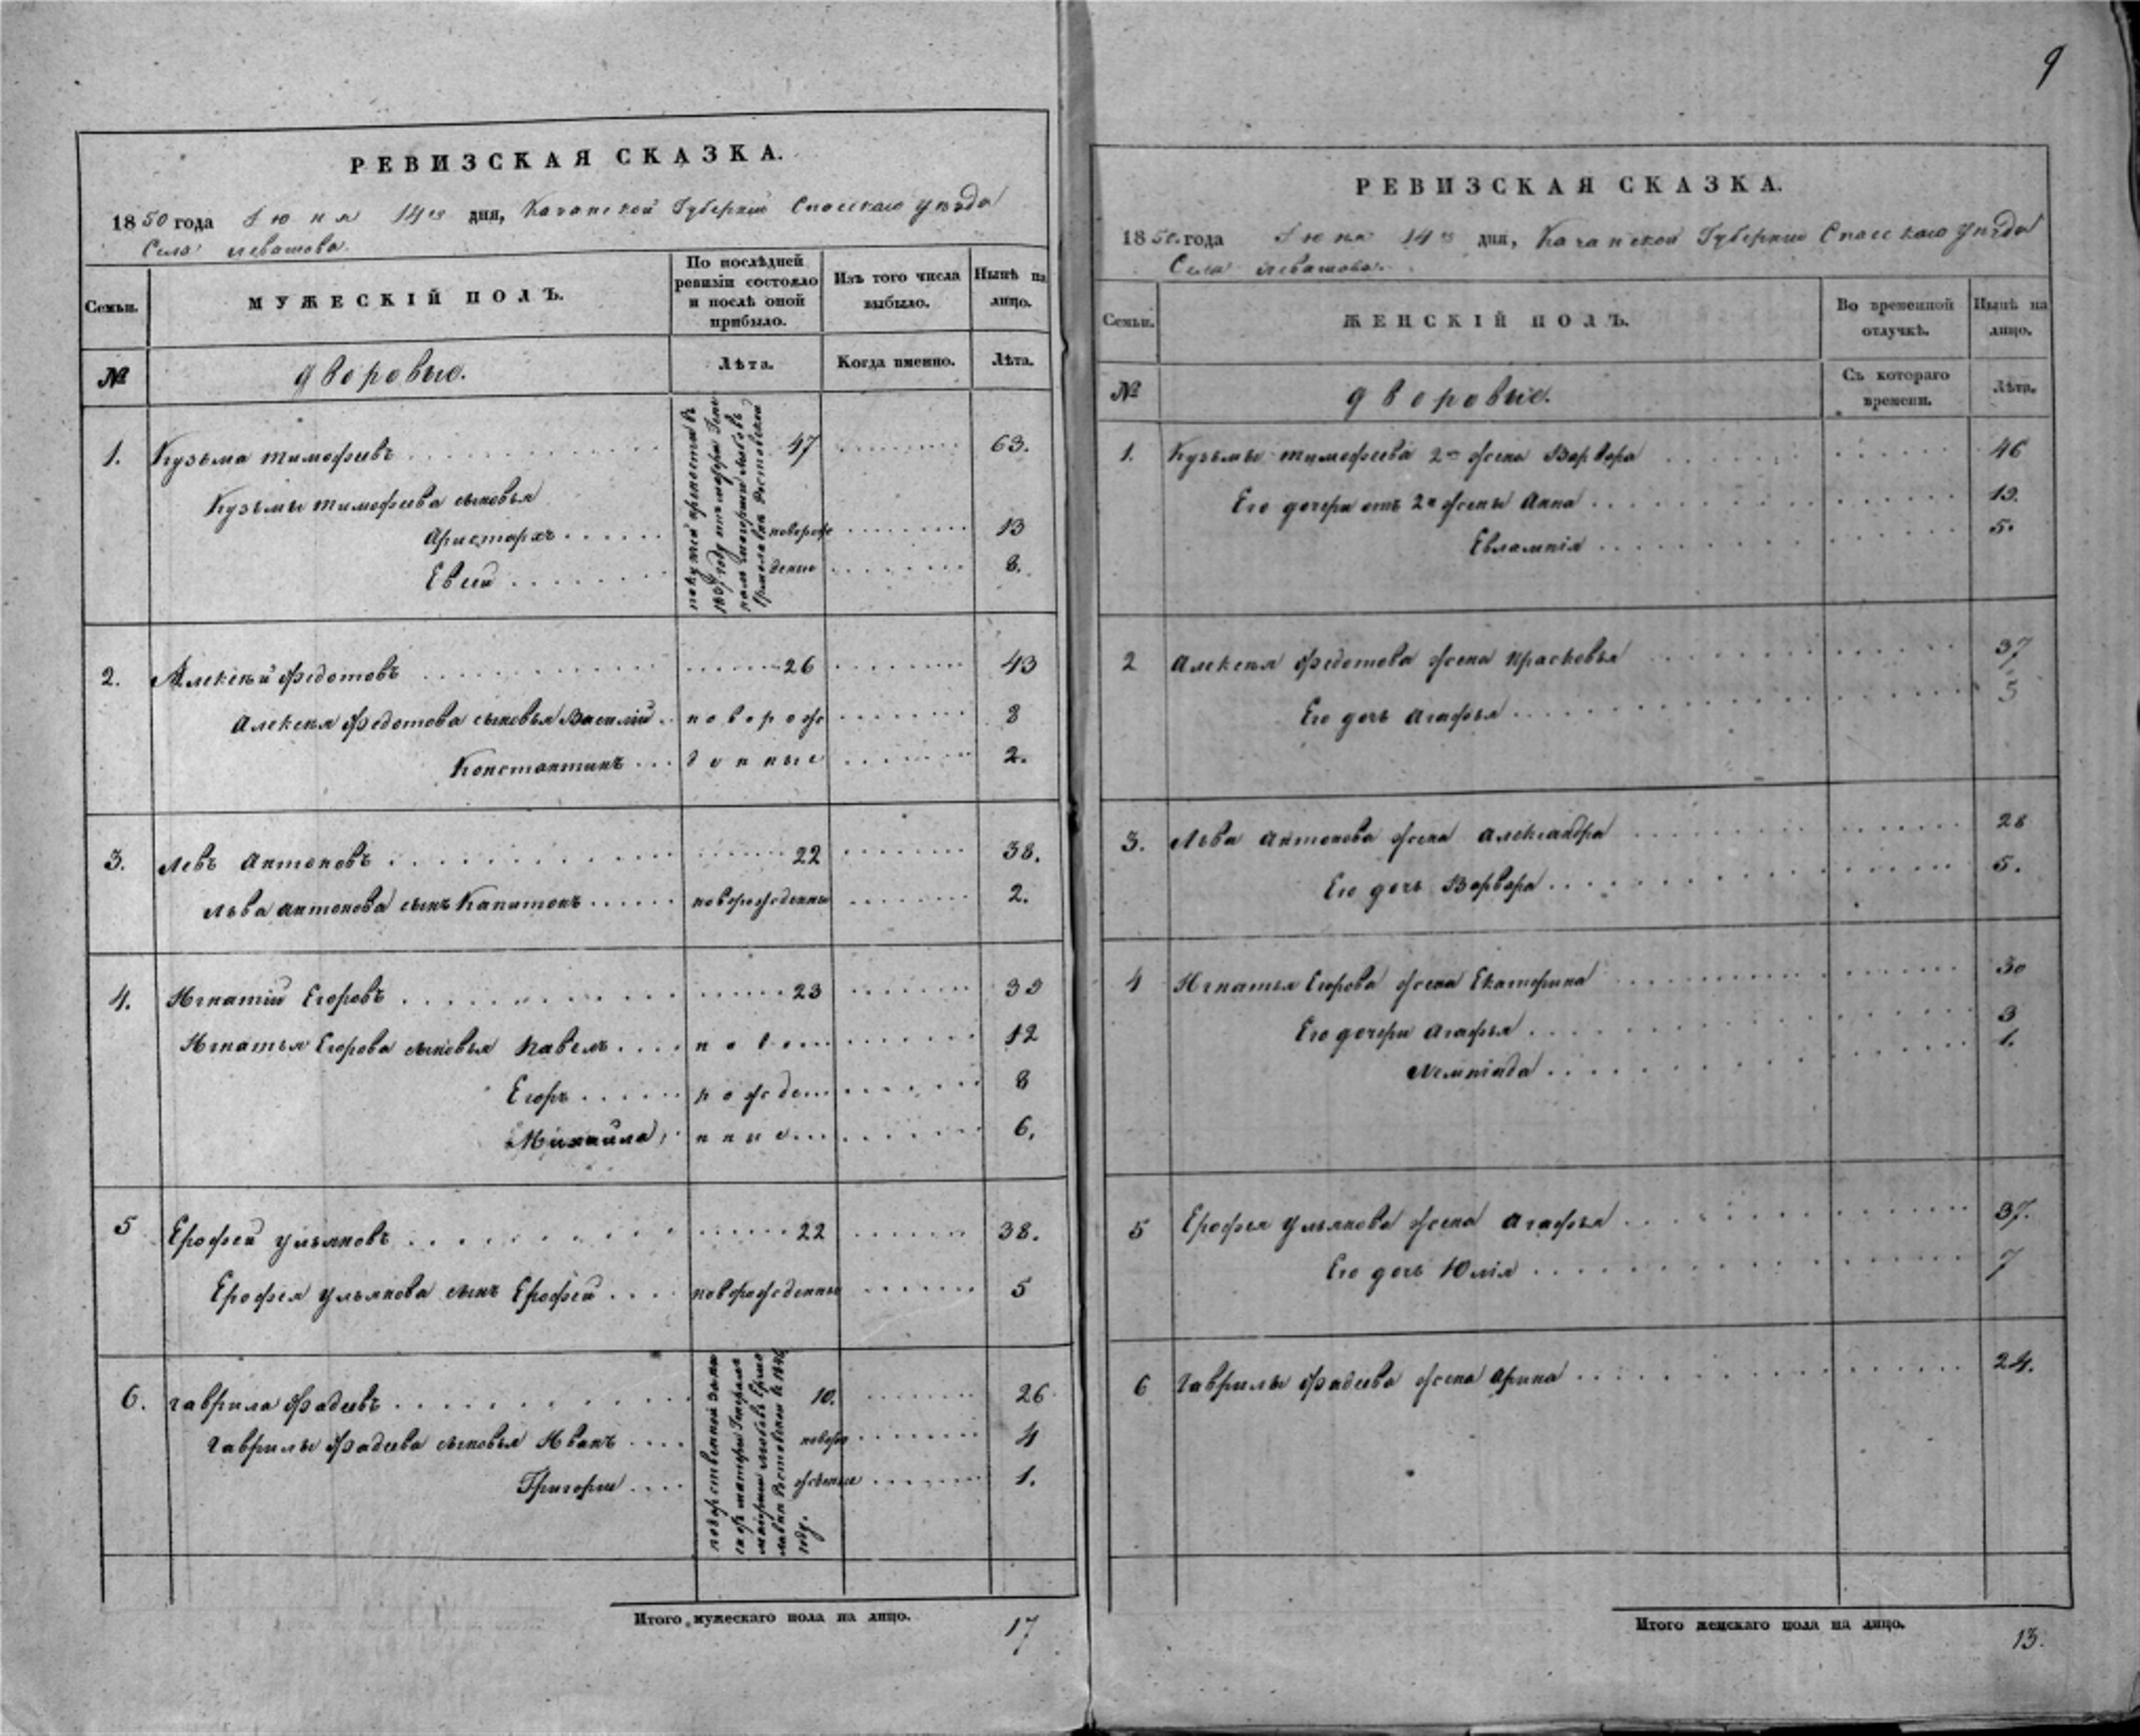 9
РЕВИЗСКАЯ СКАЗКА.
1850 года Июня 14го дня, Казанской Губернии Спасскаго уѣзда
Села Левашова.
Семьи.
МУЖЕСКІЙ ПОЛЪ.
По послѣдней ревизіи состояло и послѣ оной прибыло.
Изъ того числа выбыло.
Нынѣ на лицо.
№
дворовые.
Лѣта.
Когда именно.
Лѣта.
1. Кузьма Тимофѣевъ 47 63.
Кузьмы Тимофѣева сыновья
Аристархъ новорож 13
Евсей денные 8.
2. Алексѣй Федотовъ 26 43
Алексѣя Федотова сыновья Василій новорож 8
Константинъ денные 2.
3. Левъ Антоновъ 22 38.
Льва Антонова сынъ Капитонъ новорожденный 2.
4. Игнатій Егоровъ 23 39
Игнатья Егорова сыновья Павелъ ново 12
Егоръ рожде 8
Михайла нные 6.
5 Ерофей Ульяновъ 22 38.
Ерофея Ульянова сынъ Ерофей новорожденный 5
6. Гаврила Фадѣевъ 10. 26
Гаврилы Фадѣева сыновья Иванъ новоро 4
Григорій 1.
Итого мужескаго пола на лицо. 17
РЕВИЗСКАЯ СКАЗКА.
1850 года Июня 14го дня, Казанской Губернии Спасскаго уѣзда
Села Левашова.
Семьи.
ЖЕНСКІЙ ПОЛЪ.
Во временной отлучкѣ.
Нынѣ на лицо.
№
дворовые.
Съ котораго времени.
Лѣта.
1. Кузьмы Тимофѣева 2я жена Варвара 46
Его дочери отъ 2й жены Анна 12.
Евлампія 5.
2 Алексѣя Федотова жена Прасковья 37
Его дочь Агафья 5
3. Льва Антонова жена Александра 28
Его дочь Варвара 5.
4 Игнатья Егорова жена Екатерина 30
Его дочери Агафья 3
1.
5 Ерофея Ульянова жена Агафья 37.
Его дочь Юлія 7
6 Гаврилы Фадѣева жена Арина 24.
Итого женскаго пола на лицо. 13.